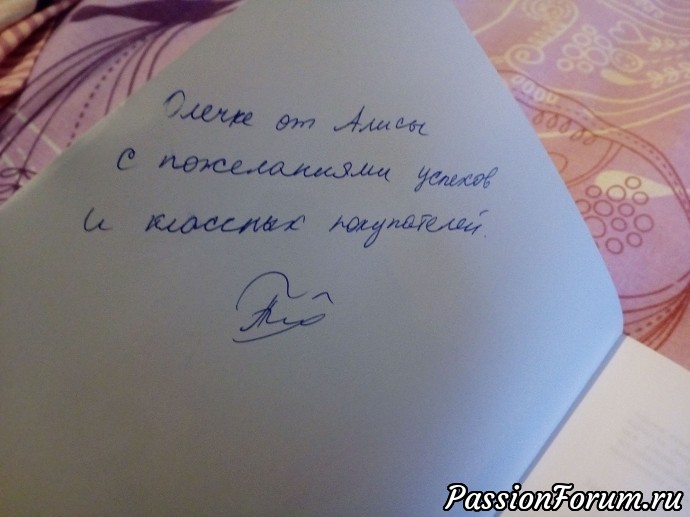 Олечке от Алисы
с пожеланиями успехов
и классных покупателей.
PassionForum.ru